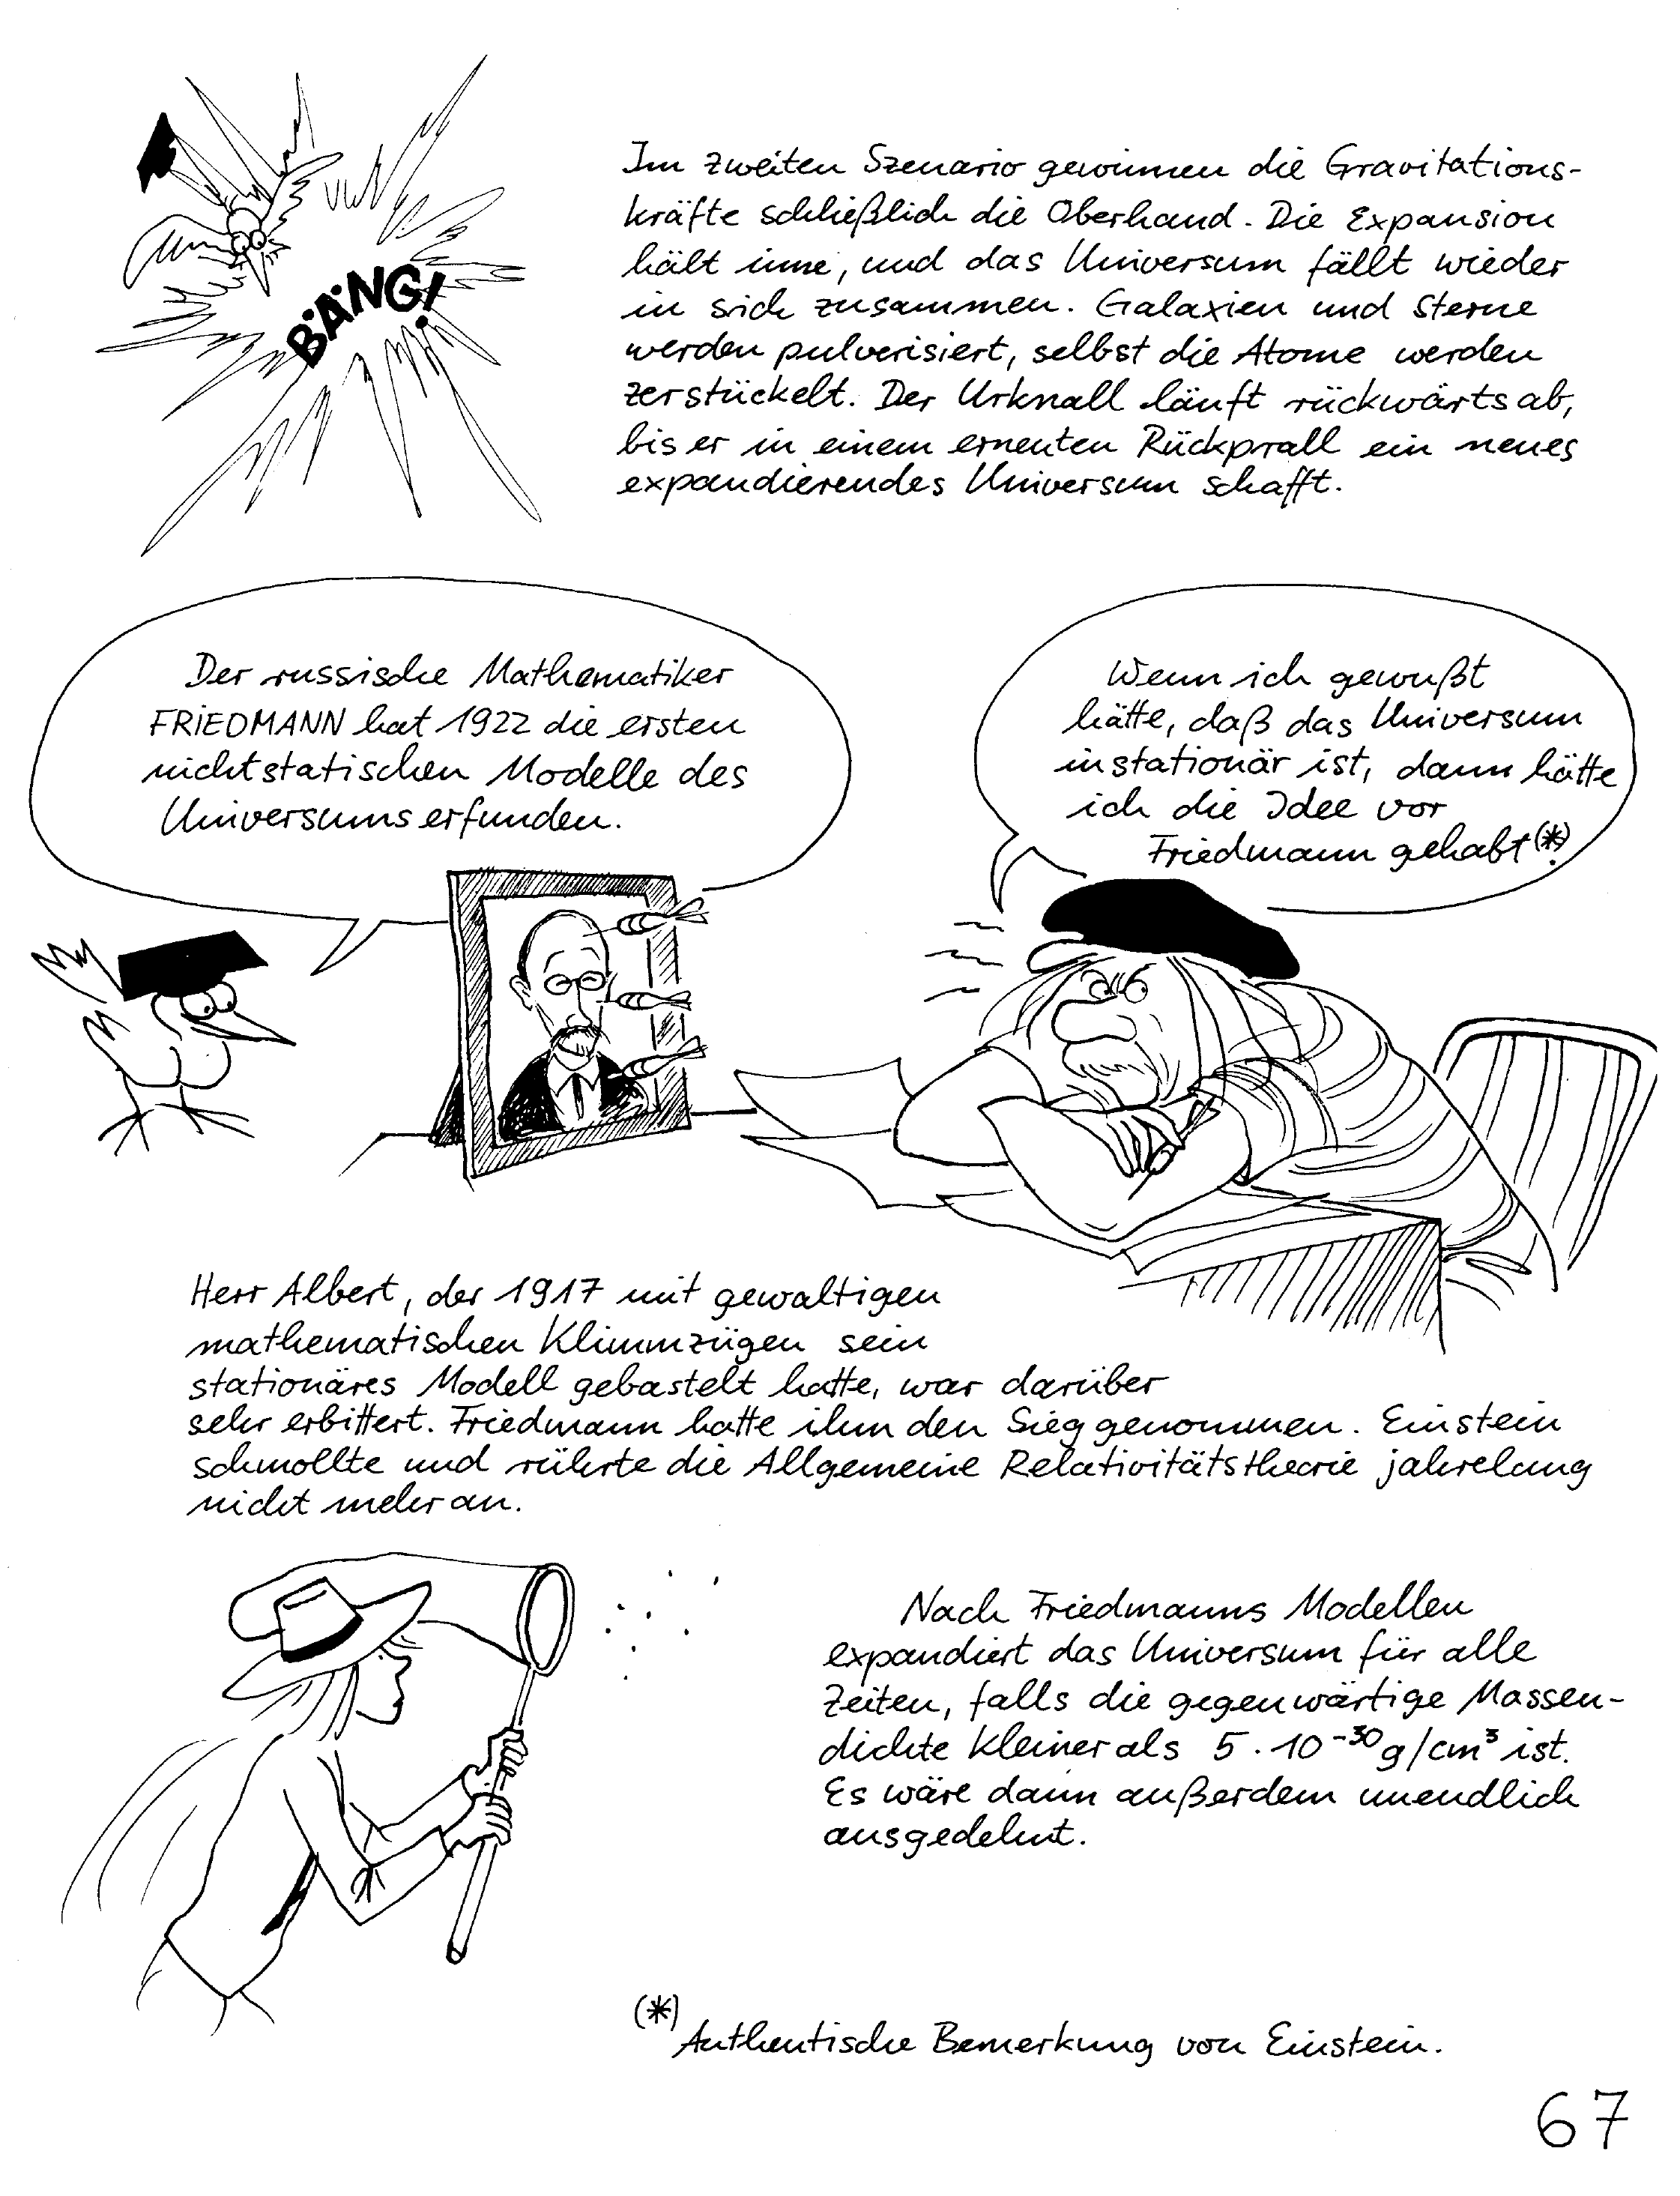 Im zweiten Szenario gewinnen die Gravitations-
kräfte schließlich die Oberhand. Die Expansion
hält inne, und das Universum fällt wieder
in sich zusammen. Galaxien und Sterne
werden pulverisiert, selbst die Atome werden
zerstückelt. Der Urknall läuft rückwärts ab,
bis er in einem erneuten Rückprall ein neues
expandierendes Universum schafft.
BÄNG!
Der russische Mathematiker
FRIEDMANN hat 1922 die ersten
nichtstatischen Modelle des
Universums erfunden.
Wenn ich gewußt
hätte, daß das Universum
instationär ist, dann hätte
ich die Idee vor
Friedmann gehabt(*).
Herr Albert, der 1917 mit gewaltigen
mathematischen Klimmzügen sein
stationäres Modell gebastelt hatte, war darüber
sehr erbittert. Friedmann hatte ihm den Sieg genommen. Einstein
schmollte und rührte die Allgemeine Relativitätstheorie jahrelang
nicht mehr an.
Nach Friedmanns Modellen
expandiert das Universum für alle
Zeiten, falls die gegenwärtige Massen-
dichte kleiner als 5 · 10⁻³⁰ g/cm³ ist.
Es wäre dann außerdem unendlich
ausgedehnt.
(*) Authentische Bemerkung von Einstein.
67